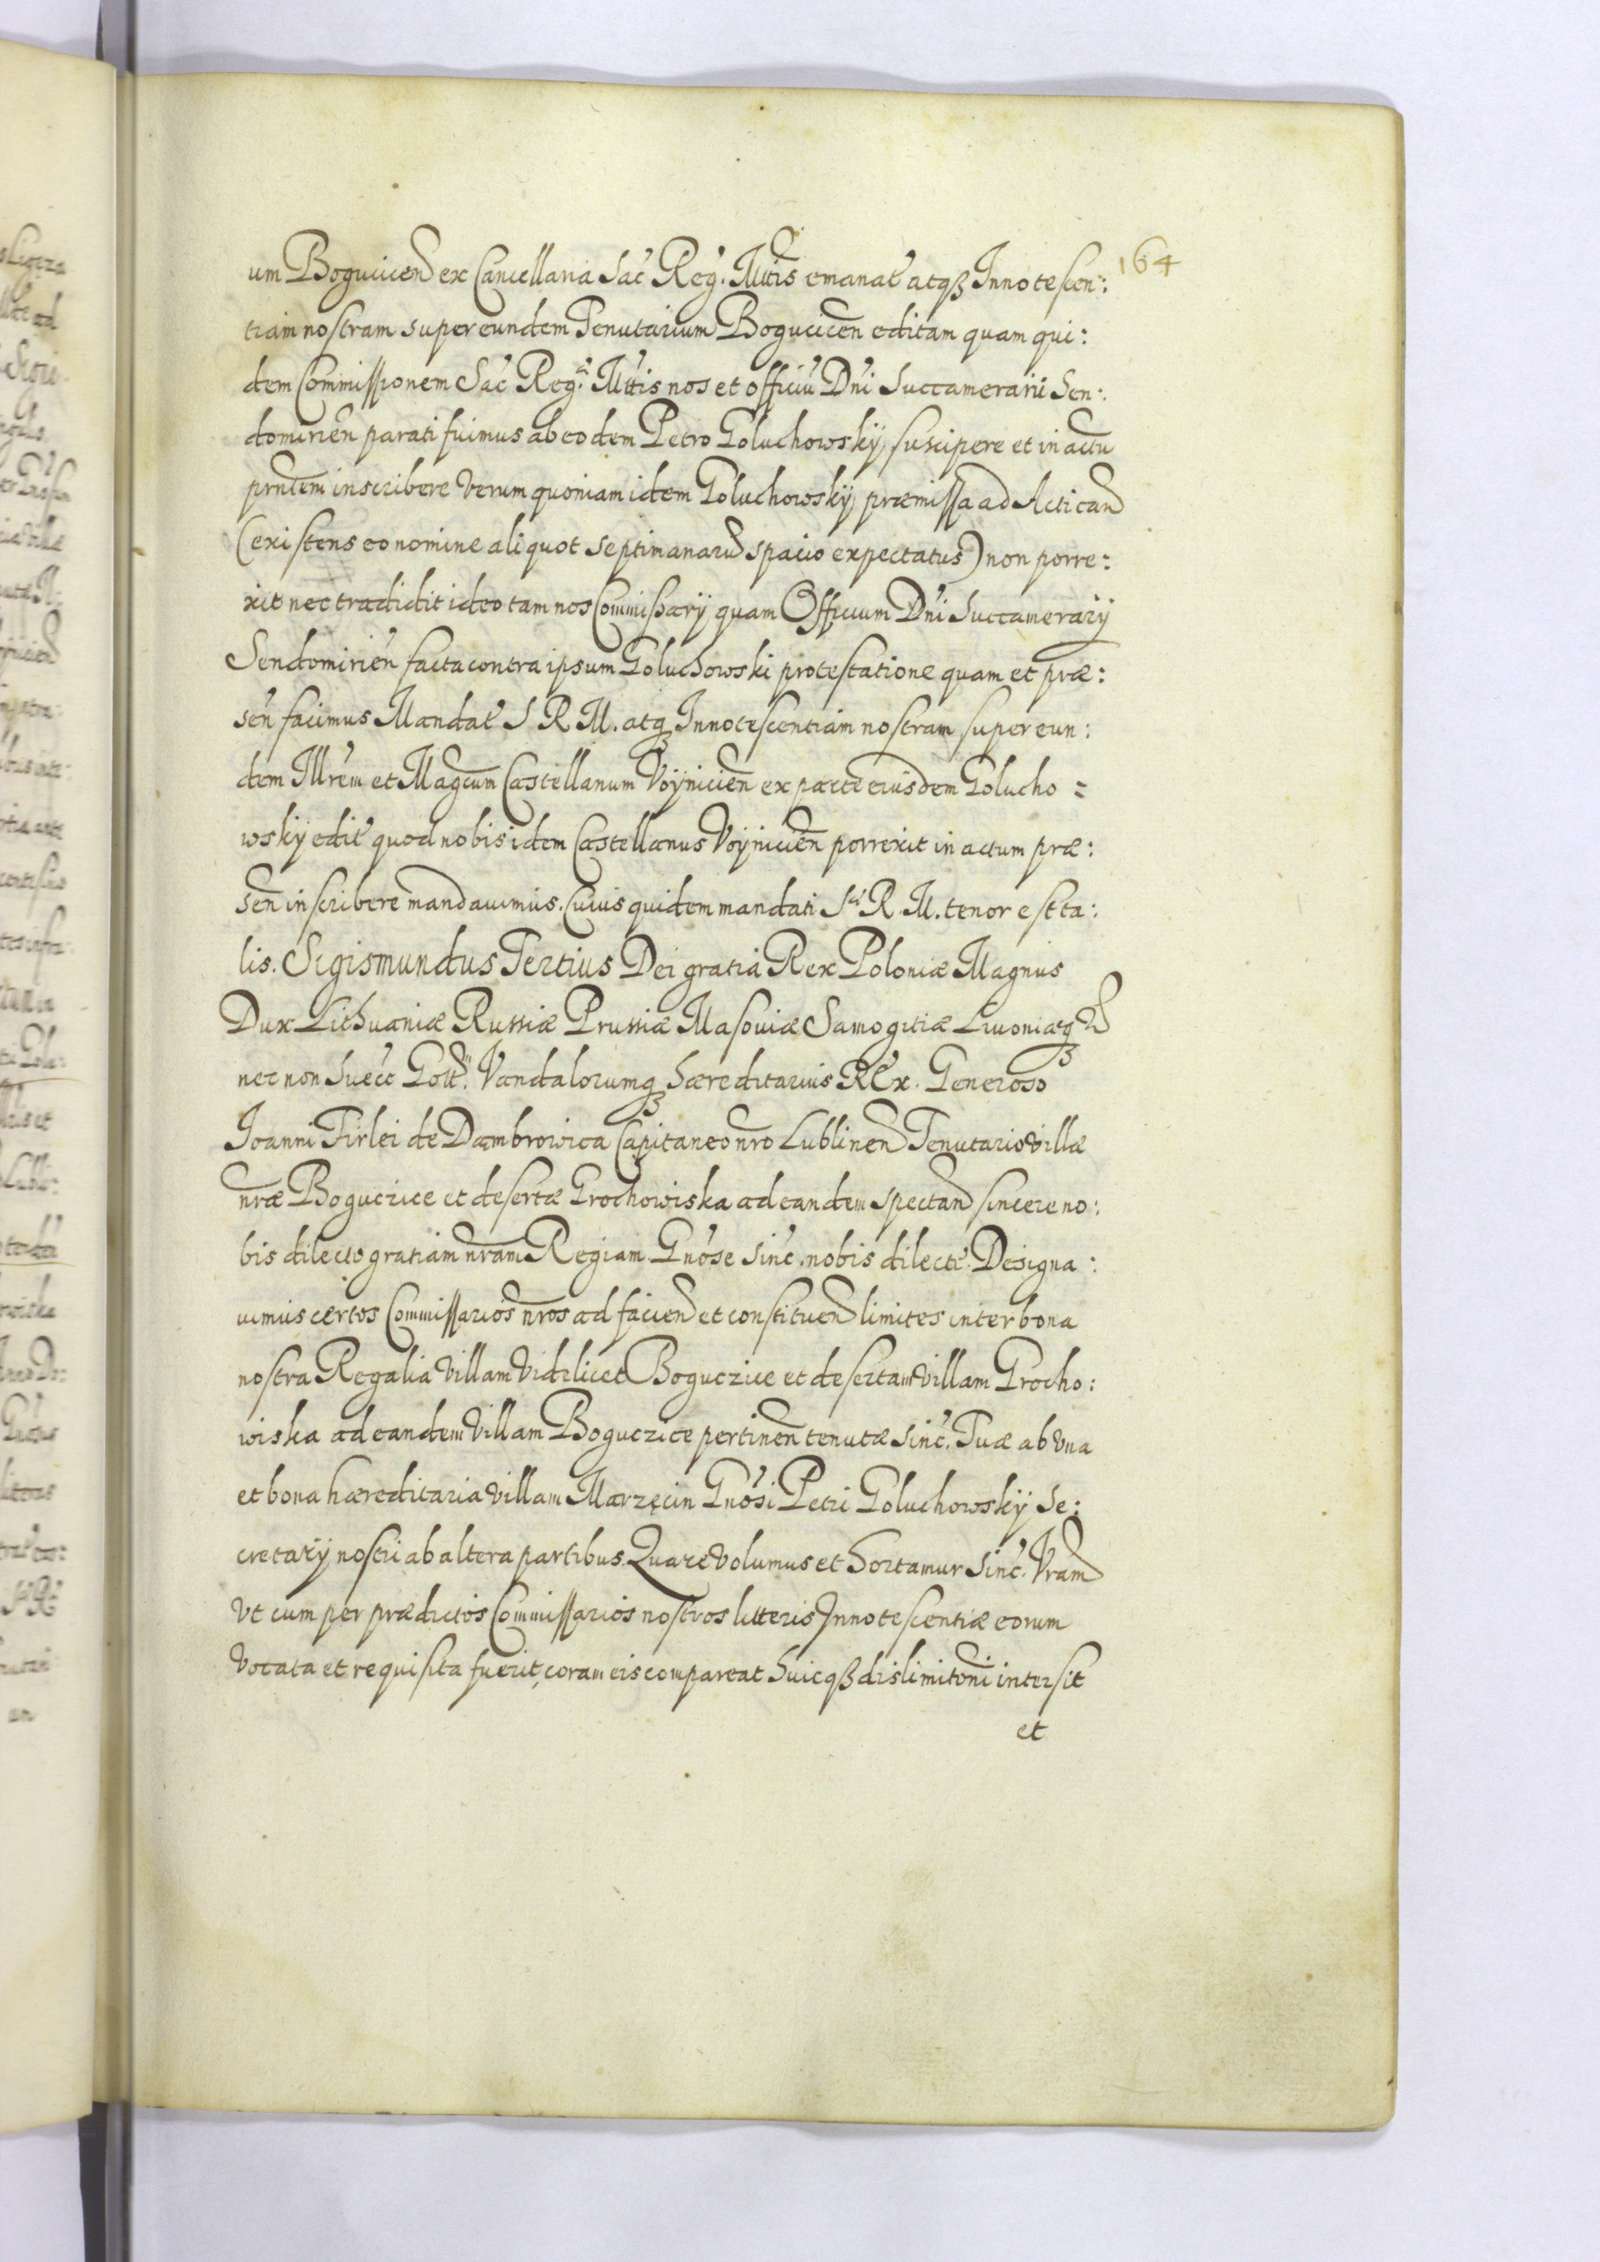 164
um Bogucicen ex Cancellaria Sac Reg. Mttis emanat atqz Innotescen:
tiam nostram super eundem Tenutarium Bogucicen editam quam qui:
dem Commissionem Sac Reg. Mttis nos et officiu Dni Succamerarii Sen:
domirien parati fuimus ab eodem Petro Goluchowsky suscipere et in actu
prntem inscribere Verum quoniam idem Goluchowsky præmissa ad Acticand
(existens eo nomine aliquot septimanaru spacio expectatus) non porre:
xit nec tradidit ideo tam nos Commissarÿ quam Officium Dni Succamerarÿ
Sendomirien facta contra ipsum Goluchowski protestatione quam et præ:
sen facimus Mandat S R M. atqz Innotescentiam nostram super eun:
dem Illrem et Magcum Castellanum Voÿnicien ex parte eiusdem Golucho =
wskÿ edit quod nobis idem Castellanus Voÿnicien porrexit in actum præ:
sen inscribere mandavimus. Cuius quidem mandati S. R. M. tenor est ta:
lis. Sigismundus Tertius Dei gratia Rex Poloniæ Magnus
Dux Lithvaniæ Russiæ Prussiæ Masoviæ Samogitiæ Livoniæqz
nec non Svecc Gott. Vandalorumqz hæreditarius REx. Generoso
Ioanni Firlei de Dambrowica Capitaneo nro Lublinen Tenutario villæ
nræ Boguczice et desertæ Grochowiska ad eandem spectan sincere no:
bis dilecto gratiam nram Regiam. Gnose sinc. nobis dilecte. Designa:
vimus certos Commissarios nros ad faciend et constituend limites inter bona
nostra Regalia Villam Videlicet Boguczice et desertam Villam Grocho:
wiska ad eandem Villam Boguczice pertinen tenutæ Sinc. Tuæ ab Vna
et bona hæreditaria Villam Marzęcin Gnosi Petri Goluchowskÿ Se:
cretarÿ nostri ab altera partibus. Quare Volumus et hortamur Sinc. Vram
Vt cum per prædictos Commissarios nostros litteris Innotescentiæ eorum
Vocata et requisita fuerit, coram eis compareat huicqz dislimitoni intersit
et